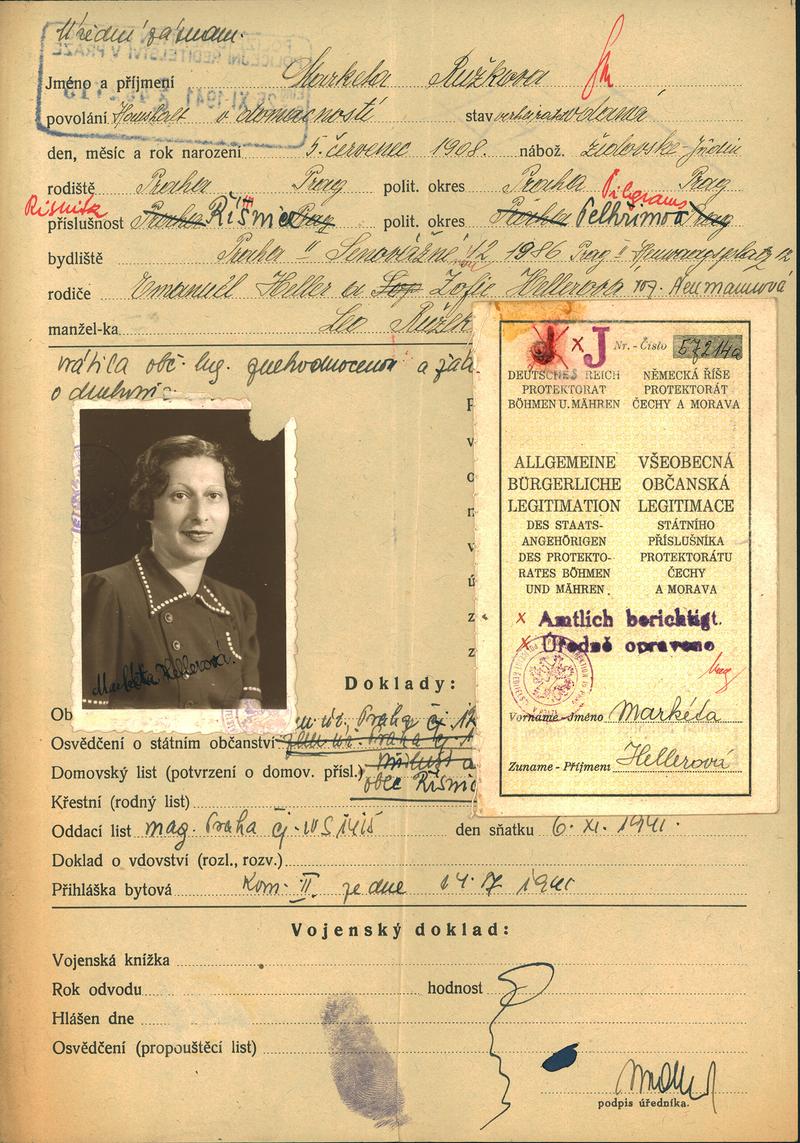 Úřední záznam.
Jméno a příjmení Marketa Růžkova
povolání Haushalt v domácnosti stav verheiratet vdaná
den, měsíc a rok narození 5. červenec 1908. nábož. židovské - Jüdin
rodiště Praha Prag polit. okres Praha Prag
Pilgrams
příslušnost Praha Řísnice Prag polit. okres Praha Pelhřimov Prag
bydliště Praha II Senovážné 12 1986 Prag II Heuwaagsplatz 12
rodiče Emanuel Heller a Zofie Hellerová roz. Neumannová
manžel-ka Leo Růžek
vrátila obč. leg. znehodnocenou a
o druhou
Markéta Hellerová.
J x J Nr. - Číslo 57214a
DEUTSCHES REICH NĚMECKÁ ŘÍŠE
PROTEKTORAT PROTEKTORÁT
BÖHMEN U. MÄHREN ČECHY A MORAVA
ALLGEMEINE VŠEOBECNÁ
BÜRGERLICHE OBČANSKÁ
LEGITIMATION LEGITIMACE
DES STAATS- STÁTNÍHO
ANGEHÖRIGEN PŘÍSLUŠNÍKA
DES PROTEKTO- PROTEKTORÁTU
RATES BÖHMEN ČECHY
UND MÄHREN. A MORAVA
x Amtlich berichtigt.
x Úředně opraveno
Vorname - Jméno Markéta
Zuname - Příjmení Hellerová
Doklady:
Ob
Praha čj
Osvědčení o státním občanství
Domovský list (potvrzení o domov. přísl.)
obec Řísnic
Křestní (rodný list)
Oddací list mag. Praha čj. den sňatku 6. XI. 1941.
Doklad o vdovství (rozl., rozv.)
Přihláška bytová Kom. II. ze dne
Vojenský doklad:
Vojenská knížka
Rok odvodu hodnost
Hlášen dne
Osvědčení (propouštěcí list)
podpis úředníka.